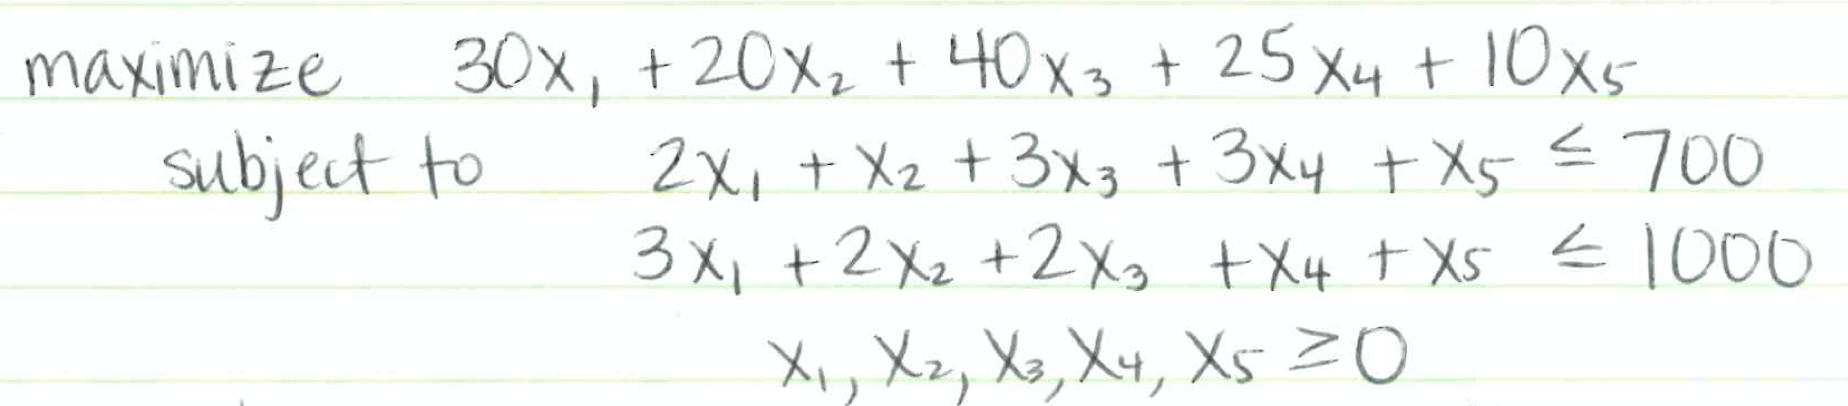 maximize 30x₁ + 20x₂ + 40x₃ + 25x₄ + 10x₅
subject to 2x₁ + x₂ + 3x₃ + 3x₄ + x₅ ≤ 700
3x₁ + 2x₂ + 2x₃ + x₄ + x₅ ≤ 1000
x₁, x₂, x₃, x₄, x₅ ≥ 0